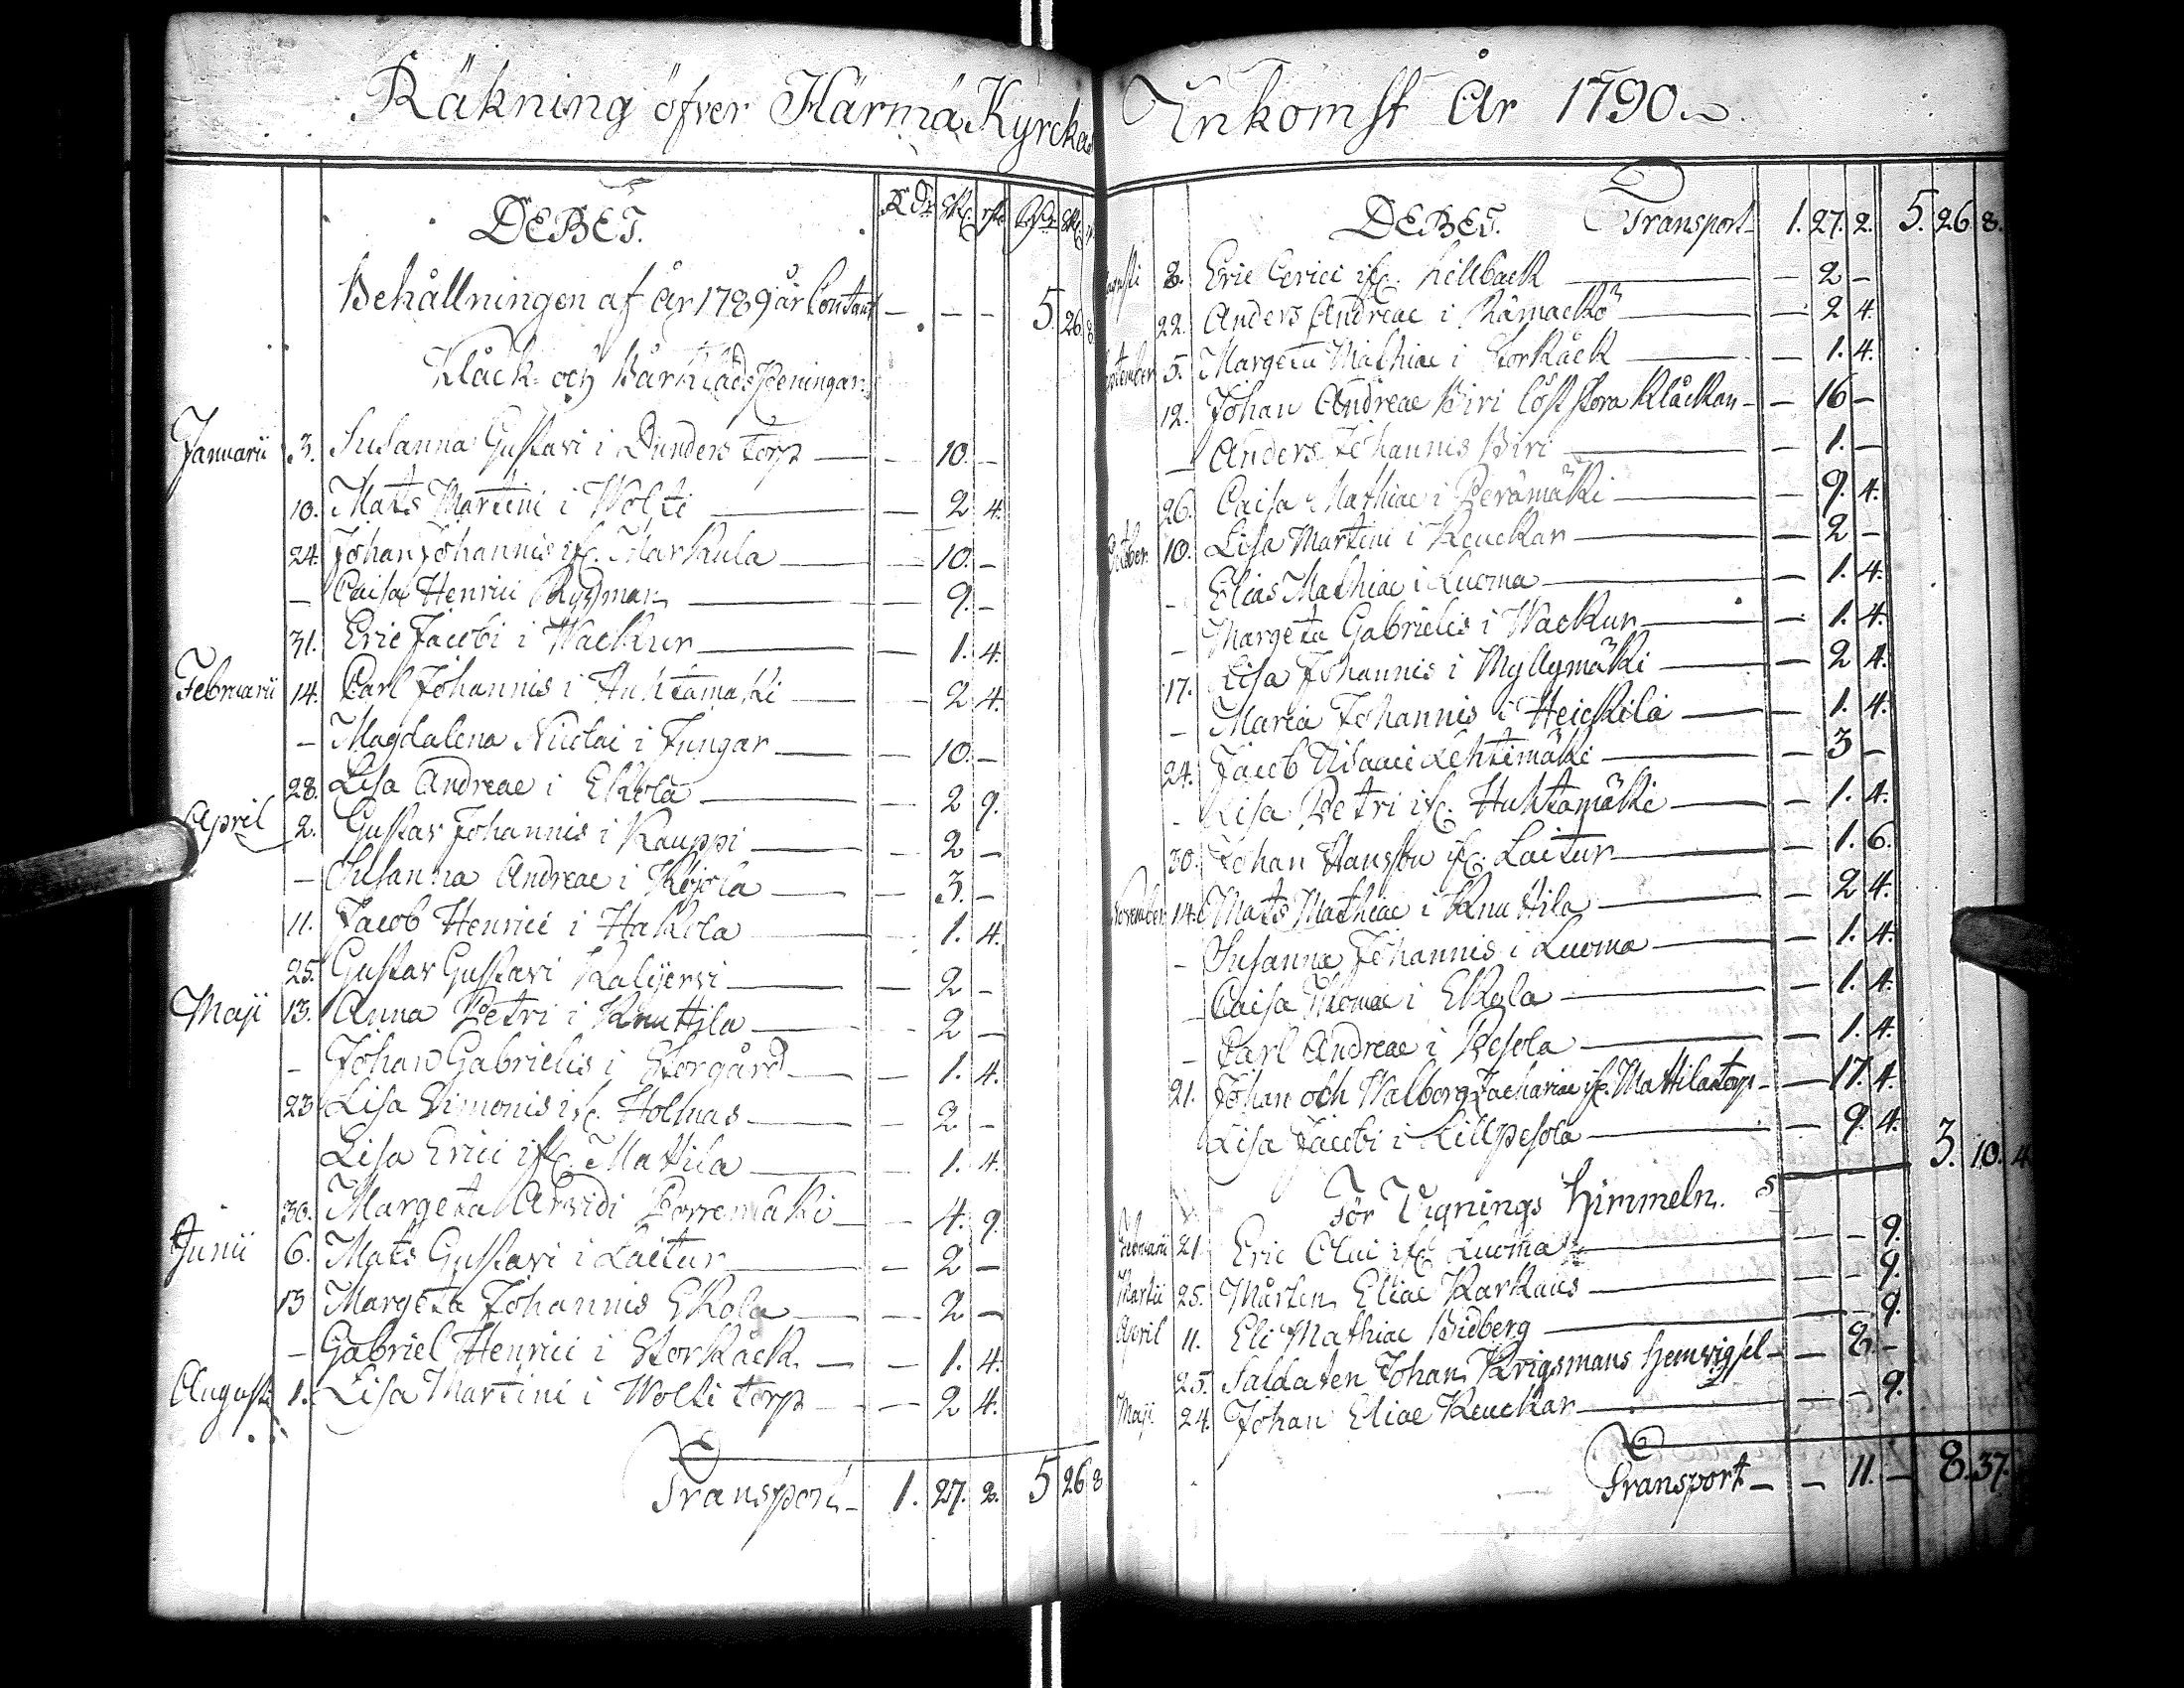 Räkning öfver Härmä Kyrckas Inkomst År 1790.
DEBET. RDr Sk. rst. RDr Sk.
Behållningen af år 1789 är Contant — — — 5. 26. 8
Klåck- och Bårklädspeningar
Januarii 3. Susanna Gustavi i Dunders torp — 10. —
10. Mats Martini i Wolti — 2 4.
24. Johan Johannis ifr. Harkula — 10. —
— Caisa Henrici Rydman — 9. —
31. Eric Jacobi i Wackur — 1. 4.
Februarii 14. Carl Johannis i Huhtamaki — 2 4.
— Magdalena Nicolai i Jungar — 10. —
28. Lisa Andreae i Ekola — 2 9.
April 2. Gustav Johannis i Kauppi — 2 —
— Susanna Andreae i Kojola — 3. —
11. Jacob Henrici i Hakola — 1. 4.
25. Gustav Gustavi Kalijervi — 2 —
Maji 13. Anna Petri i Knuttila — 2 —
— Johan Gabrielis i Storgård — 1. 4.
23 Lisa Simonis ifr. Holmas — 2 —
Lisa Erici ifr. Mattila — 1. 4.
30. Margeta Arvidi Porremäki — 4. 9
Junii 6. Mats Gustavi i Laitur — 2 —
13 Margeta Johannis Ekola — 2 —
— Gabriel Henrici i Storkäck — 1. 4.
Augusti 1. Lisa Martini i Wolti torp — 2 4.
Transport — 1. 27. 2. 5 26 8
DEBET. Transport — 1. 27. 2. 5. 26. 8.
8. Eric Erici ifr. Lillback — 2 —
22. Anders Andreae i Rämackö — 2 4.
September 5. Margeta Mathiae i Storkäck — 1. 4.
12. Johan Andreae Biri löst stora Klåckan — 16 —
— Anders Johannis Biri — 1. —
26. Caisa Mathiae i Perämäki — 9. 4.
October 10. Lisa Martini i Keuckar — 2 —
— Elias Mathiae i Luoma — 1. 4.
— Margeta Gabrielis i Wackur — 1. 4.
17. Lisa Johannis i Myllymäki — 2 4.
— Maria Johannis i Heickilä — 1. 4.
24. Jacob Isaaci Lehtimäki — 3 —
— Lisa Petri ifr. Huhtamäki — 1. 4.
30. Johan Hansson ifr. Laitur — 1. 6.
November 14. Mats Mathiae i Knuttila — 2 4.
— Susanna Johannis i Luoma — 1. 4.
— Caisa Thomae i Ekola — 1. 4.
— Carl Andreae i Pesola — 1. 4.
21. Johan och Walborg Zachariae ifr. Mattilatorp — 17. 4.
Lisa Jacobi i Lillpesola — 9. 4. 3. 10. 4
För Vignings Himmeln.
Februarii 21. Eric Olai ifr. Luoma — — 9.
Martii 25. Mårten Eliae Karkaus — — 9.
April 11. Eli Mathiae Bidberg — — 9.
25. Saldaten Johan Krigsmans hemvigsel — 8. —
Maji 24. Johan Eliae Keuckar — — 9.
Transport — — 11. — 8. 37.